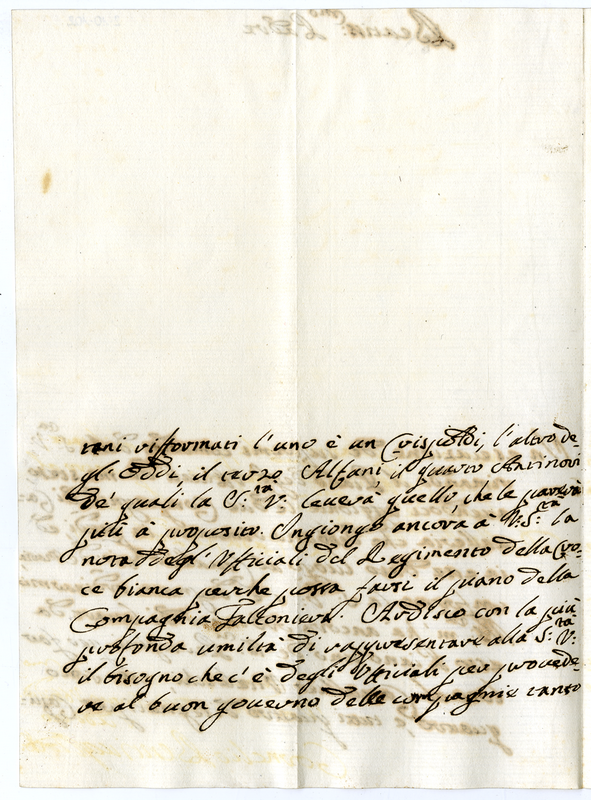 tani rifformati l'uno è un Crispoldi, l'altro de-
gl'Oddi, il terzo Alfani, il quarto Antinori
de' quali la S.tà V. leverà quello, che le parerà
più à proposito. Ingiongo ancora à V. S.tà la
nota degl'Ufficiali del Regimento della Cro-
ce bianca perche possa farsi il piano della
Compagnia Falconiera. Ardisco con la più
profonda umiltà di rappresentare alla S.tà V.
il bisogno che c'è degl'Ufficiali per provede-
re al buon governo delle compagnie tanto